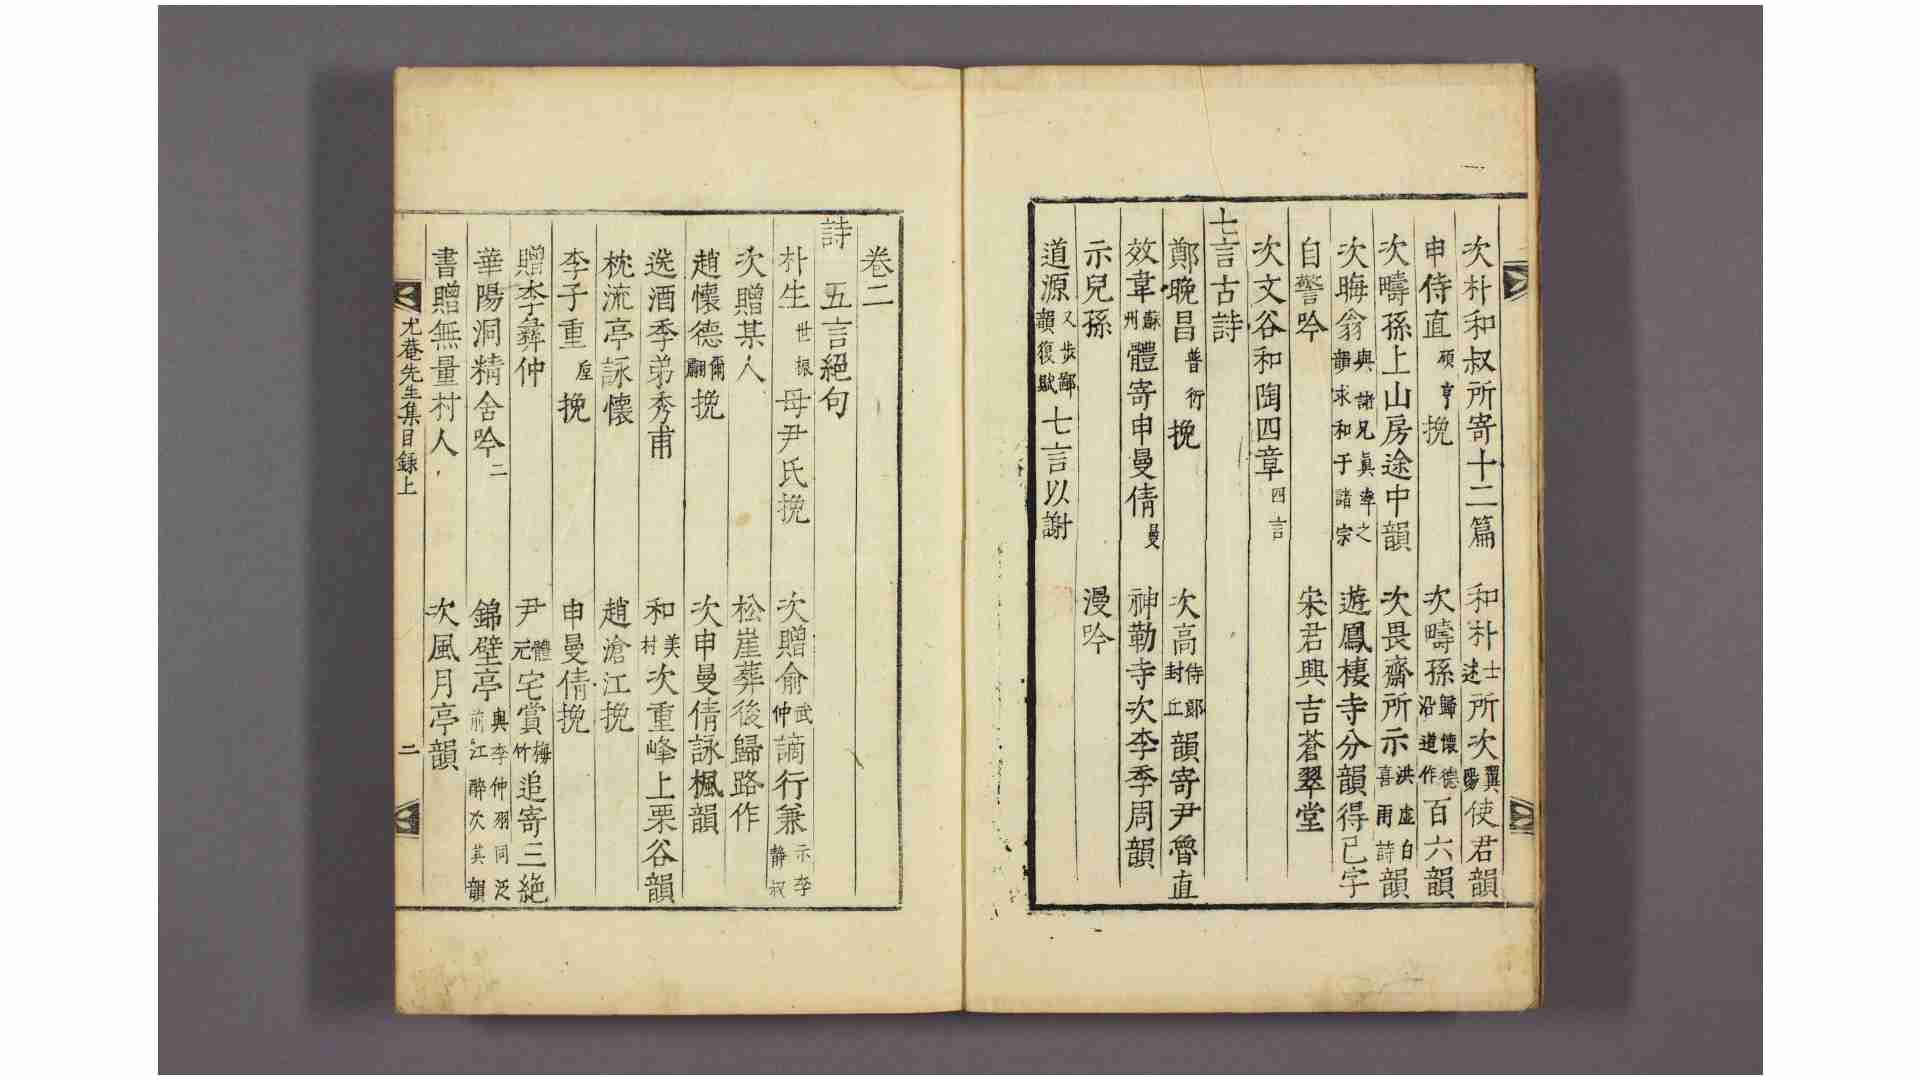 次朴和叔所寄十二篇 和朴士述所次翼陽使君韻
申侍直碩亨挽 次疇孫歸懷德沿道作百六韻
次疇孫上山房途中韻 次畏齋所示洪虛白喜雨詩韻
次晦翁與諸兄眞率之韻求和于諸宗 遊鳳棲寺分韻得己字
自警吟 宋君興吉蒼翠堂
次文谷和陶四章四言
七言古詩
鄭晩昌普衍挽 次高侍郞封丘韻寄尹魯直
效韋蘇州體寄申曼倩曼 神勒寺次李季周韻
示兒孫 漫吟
道源又步鄙韻復賦七言以謝
卷二
詩 五言絕句
朴生世振母尹氏挽 次贈俞武仲謫行兼示李靜叔
次贈某人 松崖葬後歸路作
趙懷德爾翻挽 次申曼倩詠楓韻
送酒季弟秀甫 和美村次重峰上栗谷韻
枕流亭詠懷 趙滄江挽
李子重垕挽 申曼倩挽
贈李彝仲 尹體元宅賞梅竹追寄三絶
華陽洞精舍吟二 錦壁亭與李仲羽同泛前江醉次其韻
書贈無量村人 次風月亭韻
尤菴先生集目錄上 二